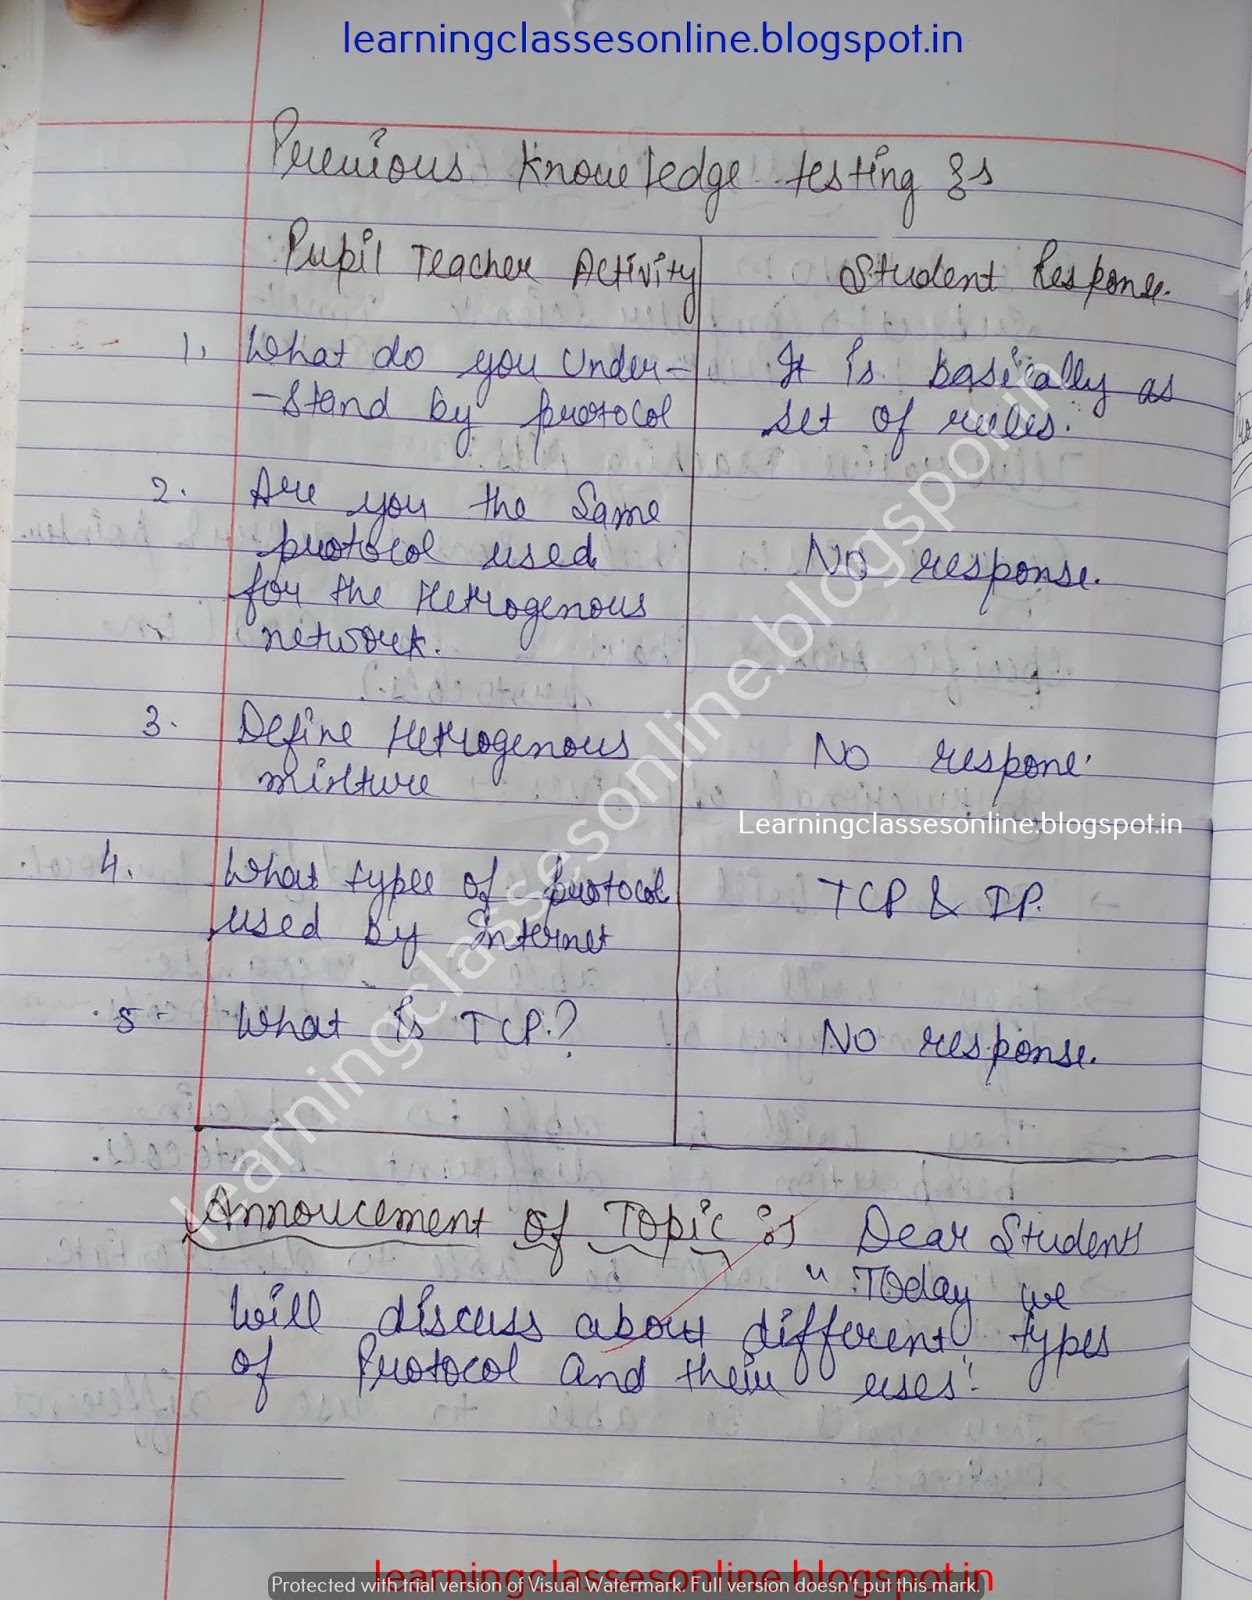 learningclassesonline.blogspot.in
Previous Knowledge testing :-
Pupil Teacher Activity
Student Response.
1. What do you Under-
-Stand by protocol
It is basically as
set of rules.
2. Are you the Same
protocol used
for the Hetrogenous
network.
No response.
3. Define Hetrogenous
mixture
No respone.
Learningclassesonline.blogspot.in
4. What types of protocol
used by Internet
TCP & IP.
5. What is TCP?
No response.
learningclassesonline.blogspot.in
Annoucement of Topic :- Dear Students
"Today we
will discuss about different types
of Protocol and their uses".
learningclassesonline.blogspot.in
Protected with trial version of Visual Watermark. Full version doesn't put this mark.